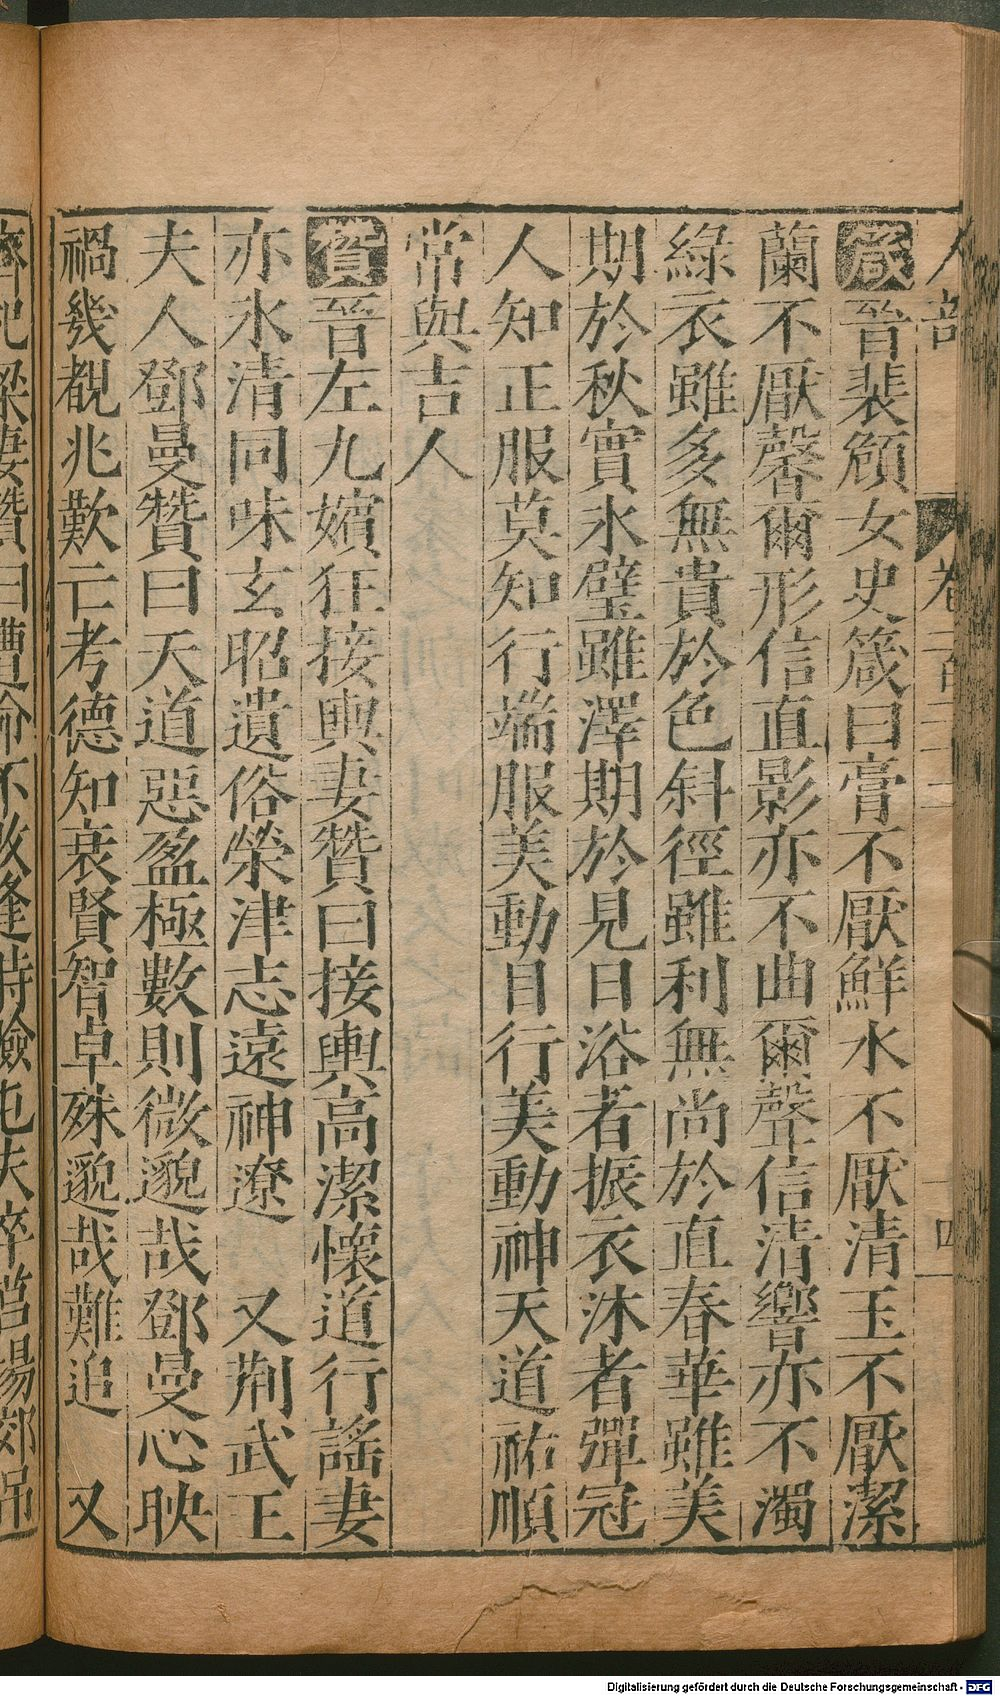 人部 卷三百三十二 四
箴晉裴頠女史箴曰膏不厭鮮水不厭清玉不厭潔
蘭不厭馨爾形信直影亦不曲爾聲信清響亦不濁
綠衣雖多無貴於色斜徑雖利無尚於直春華雖美
期於秋實氷璧雖澤期於見日浴者振衣沐者彈冠
人知正服莫知行端服美動目行美動神天道祐順
常與吉人
贊晉左九嬪狂接輿妻贊曰接輿高潔懷道行謠妻
亦氷清同味玄昭遺俗榮津志遠神遼　又荆武王
夫人鄧曼贊曰天道惡盈極數則微邈哉鄧曼心映
禍幾覩兆歎亡考德知衰賢智卓殊邈哉難追　又
齊杞梁妻贊曰遭命不改逢時險屯夫卒莒塲郊弔
Digitalisierung gefördert durch die Deutsche Forschungsgemeinschaft - DFG